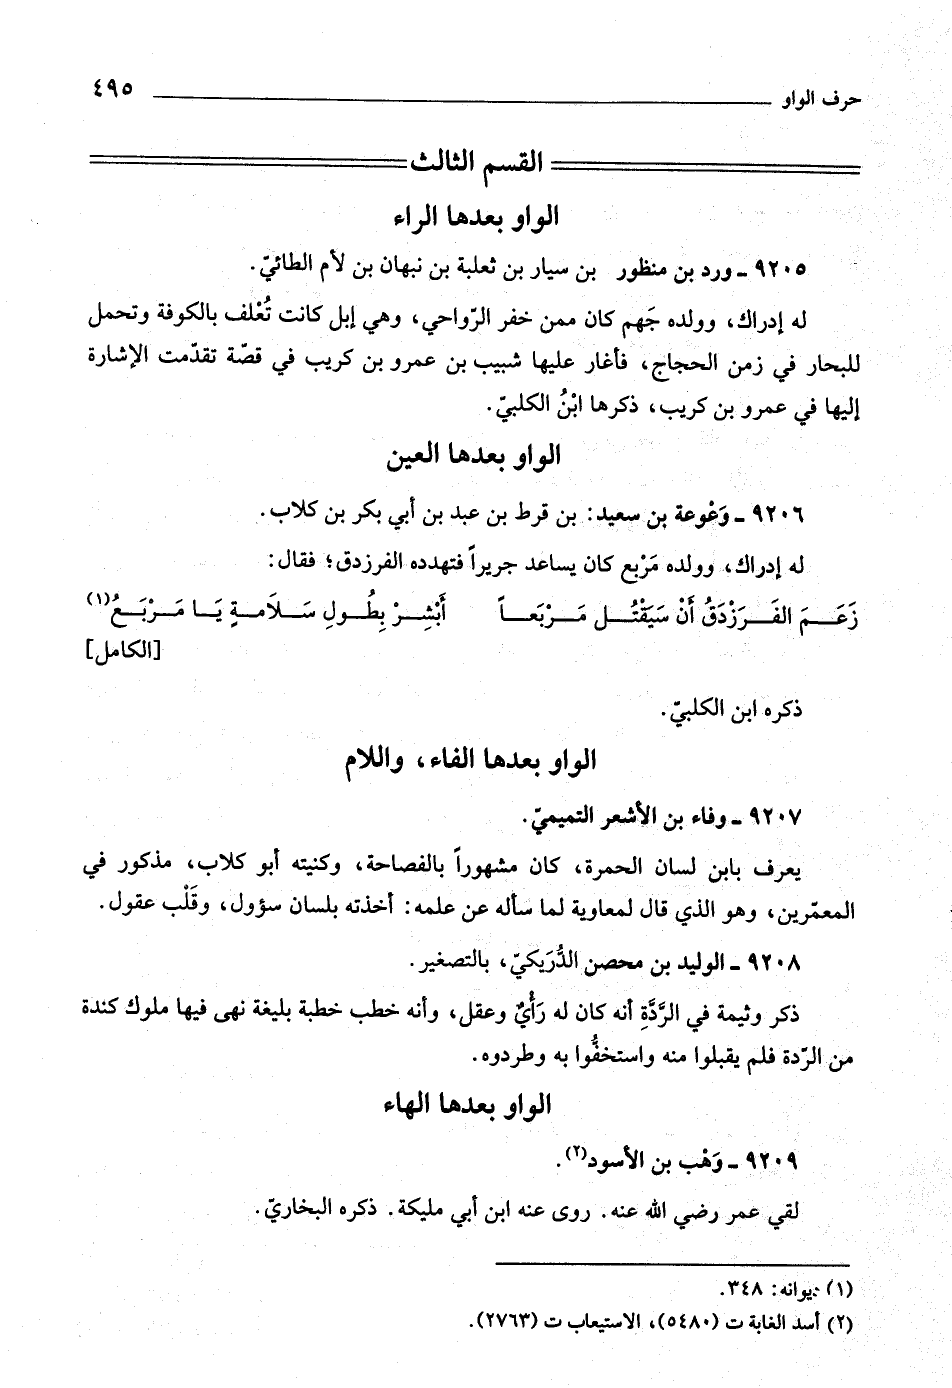 حرف الواو ٤٩٥
القسم الثالث
الواو بعدها الراء
٩٢٠٥ ـ ورد بن منظور بن سيار بن ثعلبة بن نبهان بن لأم الطائيّ.
له إدراك، وولده جَهم كان ممن خفر الرّواحي، وهي إبل كانت تُعْلف بالكوفة وتحمل
للبحار في زمن الحجاج، فأغار عليها شبيب بن عمرو بن كريب في قصّة تقدّمت الإشارة
إليها في عمرو بن كريب، ذكرها ابْنُ الكلبيّ.
الواو بعدها العين
٩٢٠٦ ـ وَعْوعة بن سعيد: بن قرط بن عبد بن أبي بكر بن كلاب.
له إدراك، وولده مَرْبع كان يساعد جريراً فتهدده الفرزدق؛ فقال:
زَعَـمَ الفَـرَزْدَقُ أَنْ سَيَقْتُـل مَـرْبَعـاً أَبْشِـرْ بِطُـولِ سَـلاَمـةٍ يَـا مَـرْبَـعُ(١)
[الكامل]
ذكره ابن الكلبيّ.
الواو بعدها الفاء، واللام
٩٢٠٧ ـ وفاء بن الأشعر التميميّ.
يعرف بابن لسان الحمرة، كان مشهوراً بالفصاحة، وكنيته أبو كلاب، مذكور في
المعمّرين، وهو الذي قال لمعاوية لما سأله عن علمه: أخذته بلسان سؤول، وقَلْب عقول.
٩٢٠٨ ـ الوليد بن محصن الدُّرَيكيّ، بالتصغير.
ذكر وثيمة في الرَّدَّةِ أنه كان له رَأْيٌ وعقل، وأنه خطب خطبة بليغة نهى فيها ملوك كندة
من الرّدة فلم يقبلوا منه واستخفُّوا به وطردوه.
الواو بعدها الهاء
٩٢٠٩ ـ وَهْب بن الأسود(٢).
لقي عمر رضي الله عنه. روى عنه ابن أبي مليكة. ذكره البخاريّ.
(١) ديوانه: ٣٤٨.
(٢) أسد الغابة ت (٥٤٨٠)، الاستيعاب ت (٢٧٦٣).